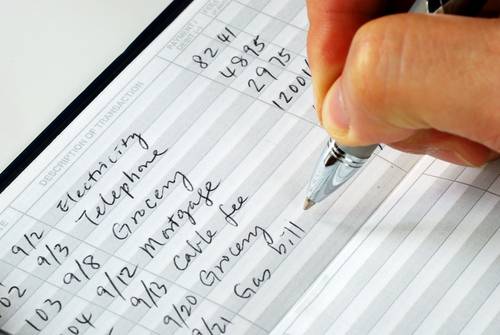 DESCRIPTION OF TRANSACTION PAYMENT/
9/2 Electricity 82 41
02 9/3 Telephone 48 95
103 9/8 Grocery 29 75
04 9/12 Mortgage 1200
9/13 Cable fee
9/20 Grocery
9/21 Gas bill